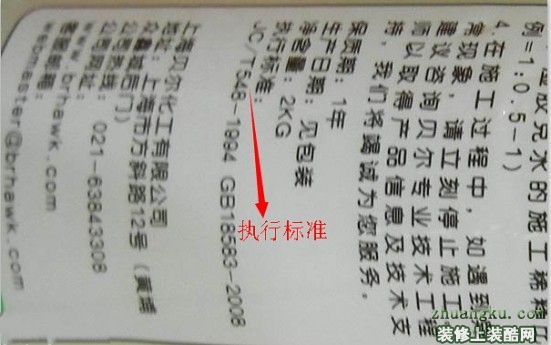 兑水的施工稀料
例=1:0.5-1)
4. 在施工过程中，如遇到异
常现象，请立刻停止施工，
建议咨询贝尔专业技术工程
师以取得产品信息及技术支
持，我们将竭诚为您服务。
保质期：1年
生产日期：见包装
净含量：2KG
执行标准：
JC/T548-1994 GB18583-2008
上海贝尔化工有限公司
地址：上海市方斜路12号（黄埔
众鑫城后门）
公司热线：021-63843308
公司网址：
www.brhawk.com
客服邮箱：
webmaster@brhawk.com
执行标准
zhuangku.com
装修上装酷网